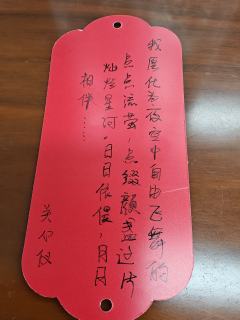 我愿化为夜空中自由飞舞的
点点流萤，点缀颜盖这片
灿烂星河。日日依偎，月月
相伴……
关